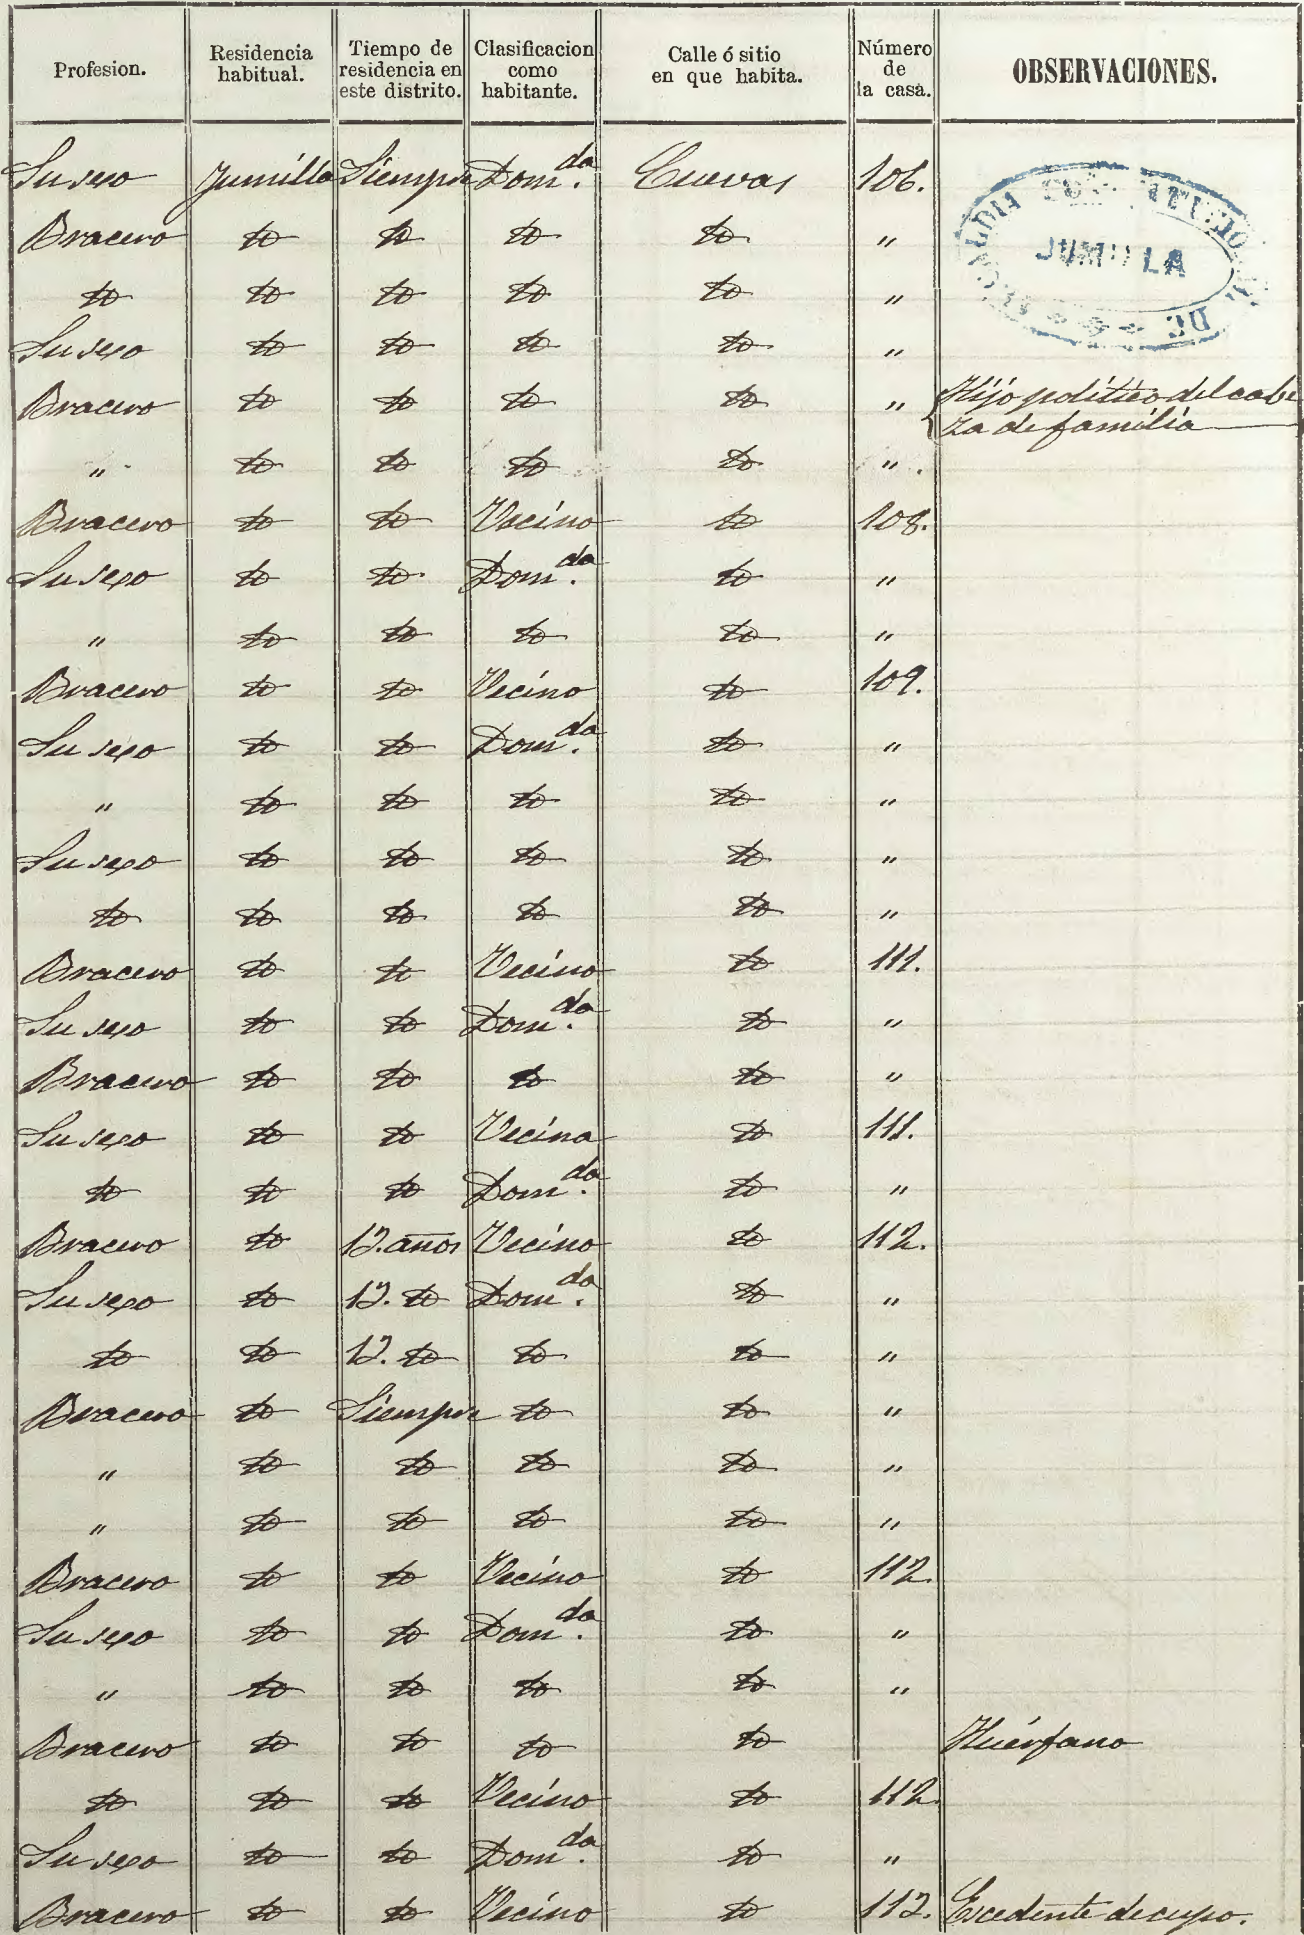 Profesion. Residencia habitual. Tiempo de residencia en este distrito. Clasificacion como habitante. Calle ó sitio en que habita. Número de la casa. OBSERVACIONES.
Su sexo Jumilla Siempre Dom.da Cuevas 106.
ALCALDIA CONSTITUCIONAL DE JUMILLA
Bracero to to to to "
to to to to to "
Su sexo to to to to "
Bracero to to to to " Hijo politico del cabe
za de familia
" to to to to "
Bracero to to Vecino to 108.
Su sexo to to Dom.da to "
" to to to to "
Bracero to to Vecino to 109.
Su sexo to to Dom.da to "
" to to to to "
Su sexo to to to to "
to to to to to "
Bracero to to Vecino to 111.
Su sexo to to Dom.da to "
Bracero to to to to "
Su sexo to to Vecina to 111.
to to to Dom.da to "
Bracero to 12. años Vecino to 112.
Su sexo to 12. to Dom.da to "
to to 12. to to to "
Bracero to Siempre to to "
" to to to to "
" to to to to "
Bracero to to Vecino to 112.
Su sexo to to Dom.da to "
" to to to to "
Bracero to to to to Huérfano
to to to Vecino to 112.
Su sexo to to Dom.da to "
Bracero to to Vecino to 112. Escedente de cupo.